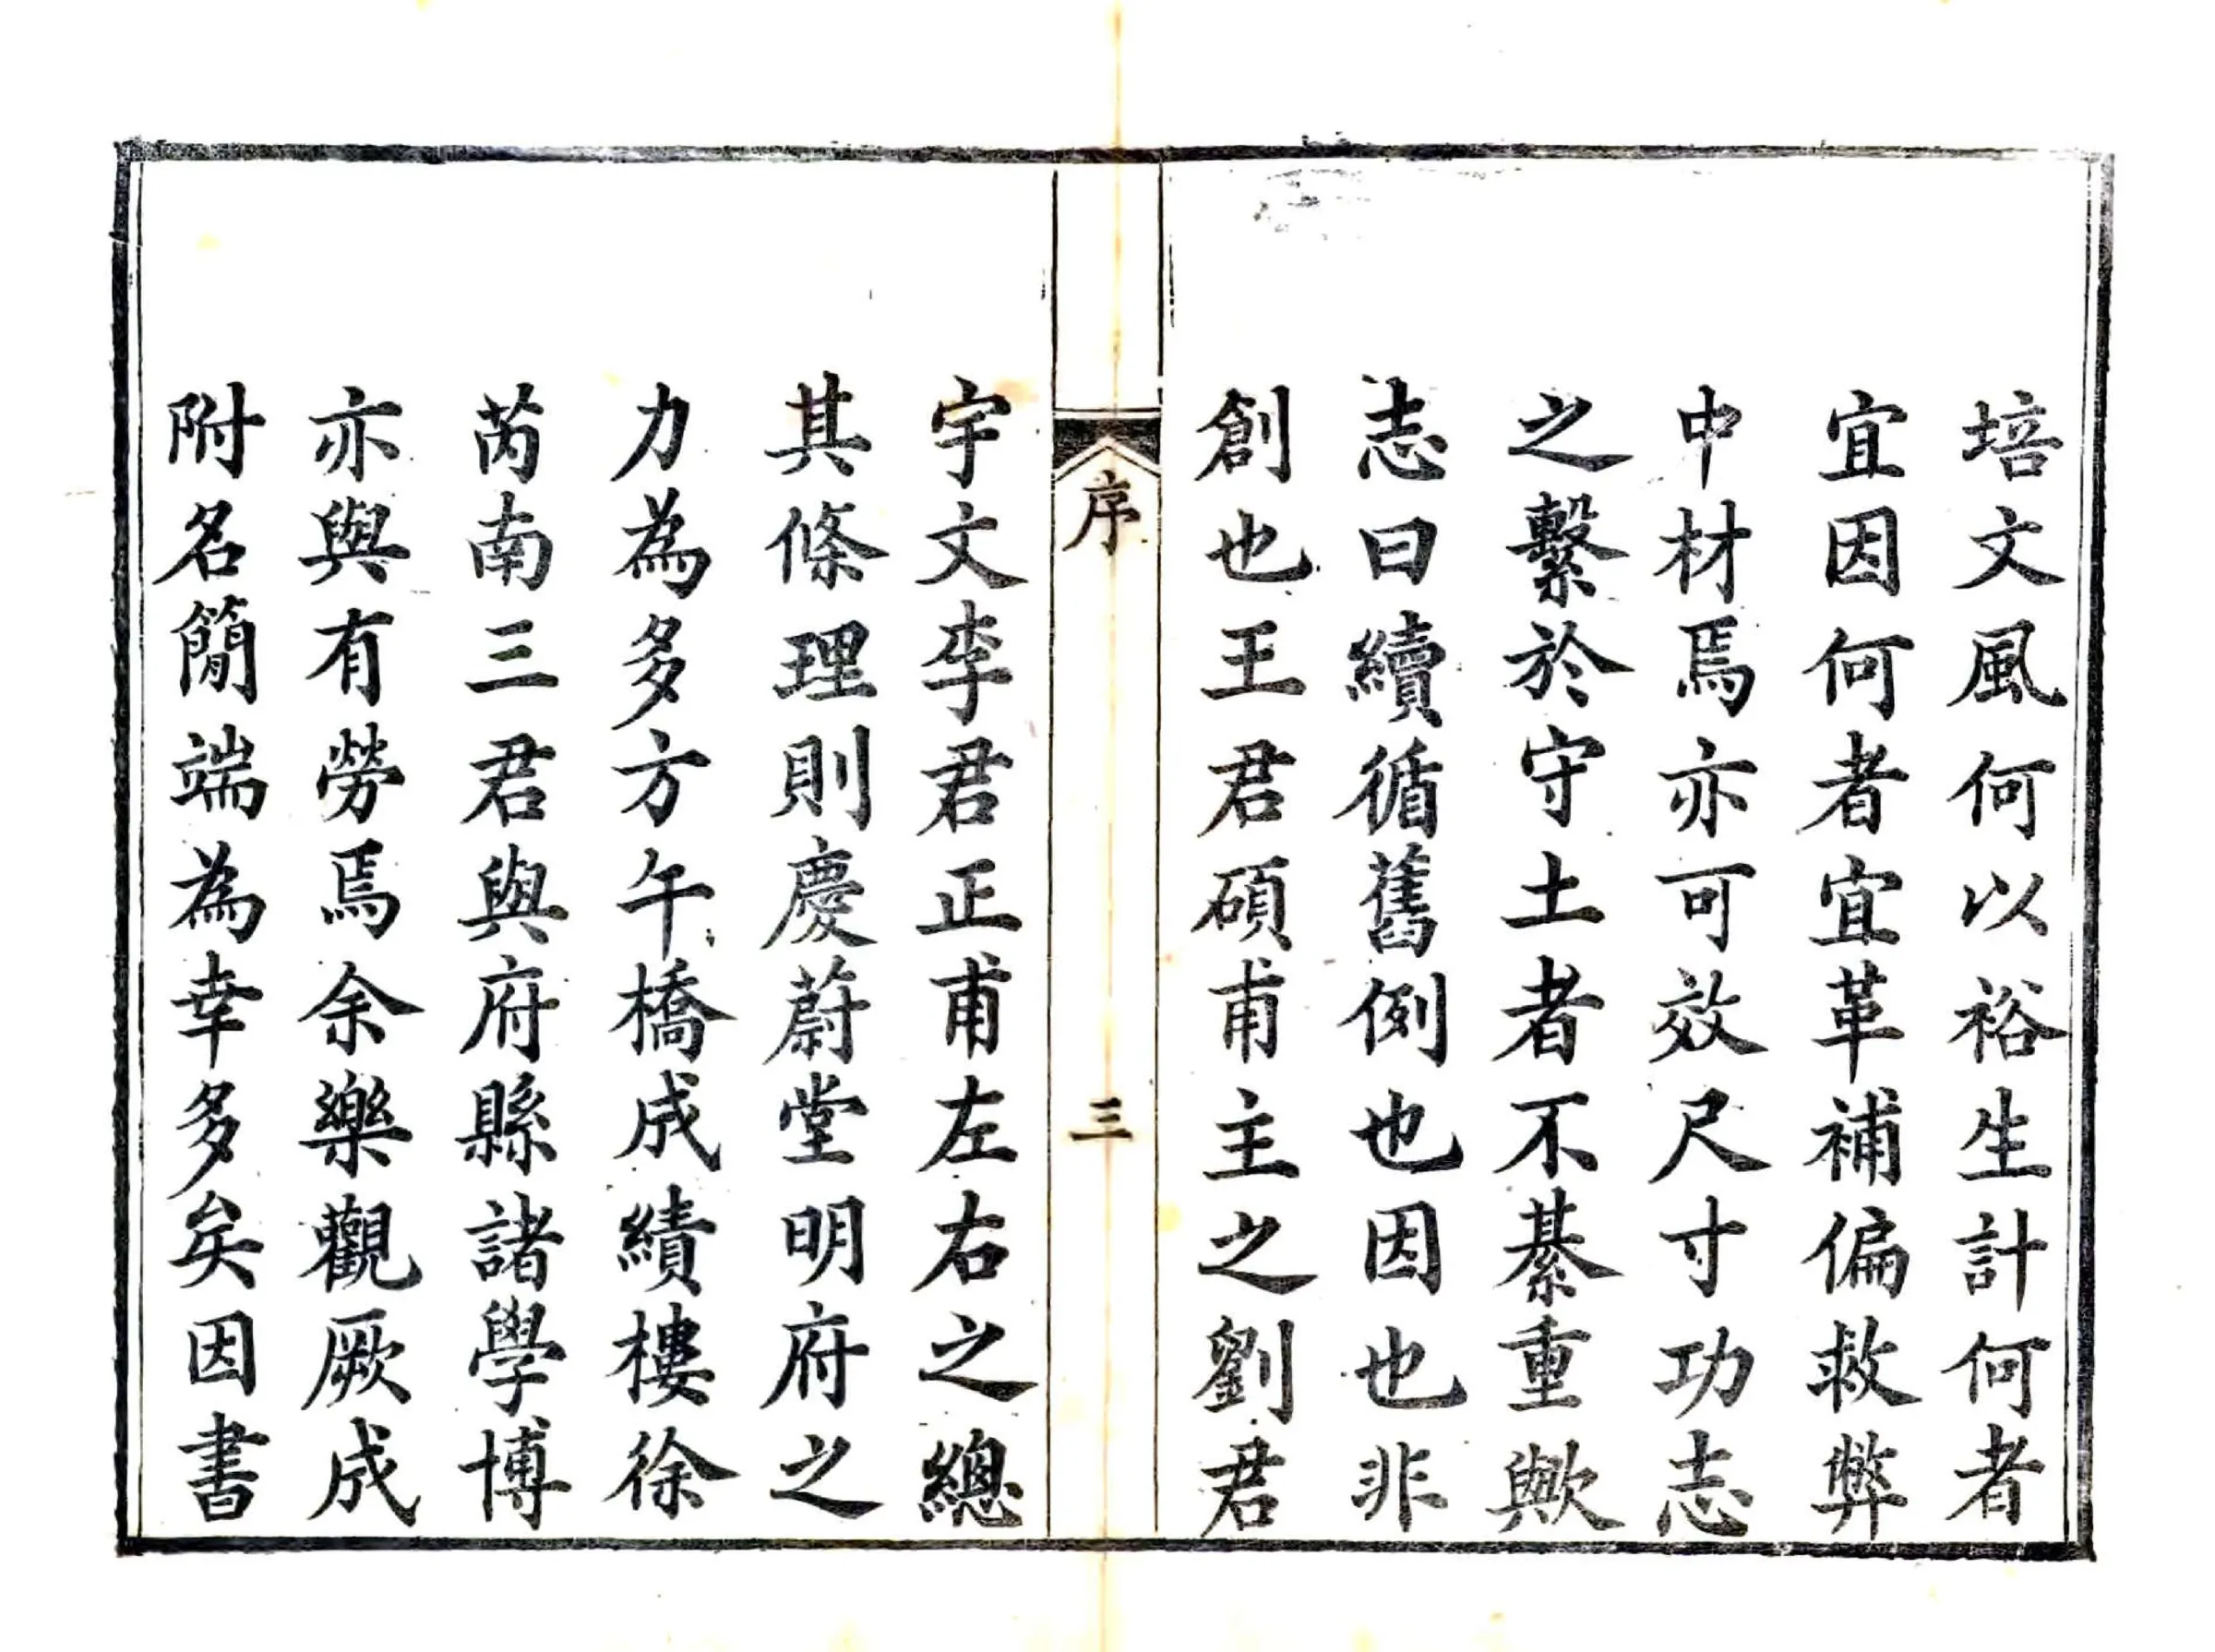 培文風何以裕生計何者
宜因何者宜革補偏救弊
中材焉亦可效尺寸功志
之繫於守土者不綦重歟
志曰續循舊例也因也非
創也王君碩甫主之劉君
序
三
宇文李君正甫左右之總
其條理則慶蔚堂明府之
力為多方午橋成績樓徐
芮南三君與府縣諸學博
亦與有勞焉余樂觀厥成
附名簡端為幸多矣因書